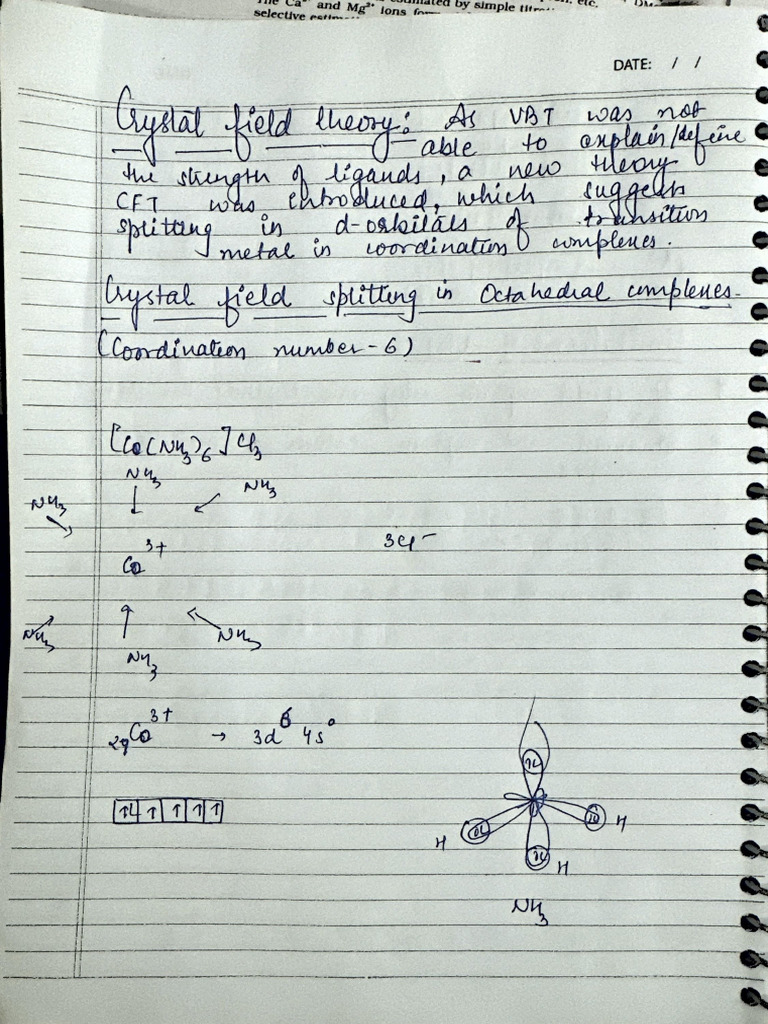 The Ca²⁺ and Mg²⁺ ions
by simple
selective
DATE: / /
Crystal field theory: As VBT was not
able to explain/define
the strength of ligands, a new theory
CFT was introduced, which suggests
splitting in d-orbitals of transition
metal in coordination complexes.
Crystal field splitting in Octahedral complexes.
(Coordination number-6)
[Co(NH₃)₆]Cl₃
NH₃
NH₃
NH₃
Co³⁺
3Cl⁻
NH₃
NH₃
NH₃
₂₇Co³⁺ → 3d⁶ 4s⁰
↑↓ ↑ ↑ ↑ ↑
↑↓
H
H
H
NH₃